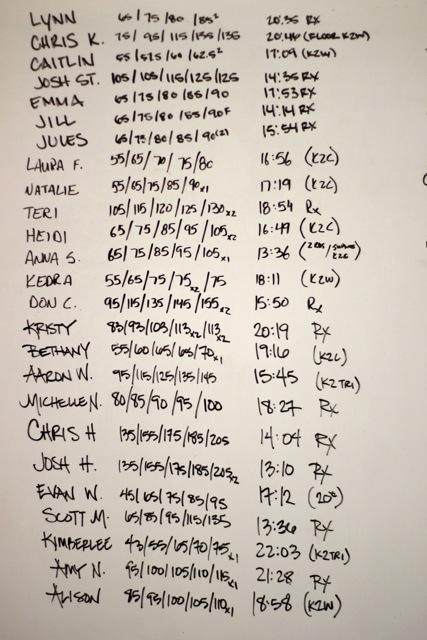 LYNN 65/75/80/85² 20:35 RX
CHRIS K. 75/95/115/135/135 20:44 (FLOOR K2W)
CAITLIN 55/575/60/62.5² 17:09 (K2W)
JOSH ST. 105/105/115/125/125 14:35 RX
EMMA 65/75/80/85/90 17:53 RX
JILL 65/75/80/85/90F 14:14 RX
JULES 65/75/80/85/90(2) 15:54 RX
LAURA F. 55/65/70/75/80 16:56 (K2C)
NATALIE 55/65/75/85/90x1 17:19 (K2C)
TERI 105/115/120/125/130x2 18:54 Rx
HEIDI 65/75/85/95/105x2 16:49 (K2C)
ANNA S. 65/75/85/95/105x1 13:36
KEDRA 55/65/75/75x2/75 18:11 (K2W)
DON C. 95/115/135/145/155x2 15:50 Rx
KRISTY 83/93/103/113x2/113x2 20:19 RX
BETHANY 55/60/65/65/70x1 19:16 (K2C)
AARON W. 95/115/125/135/145 15:45 (K2TRI)
MICHELLE N. 80/85/90/95/100 18:27 RX
CHRIS H 135/155/175/185/205 14:04 RX
JOSH H. 135/155/175/185/205x2 13:10 RX
EVAN W. 45/65/75/85/95 17:12 (20")
SCOTT M. 65/85/95/115/135 13:36 RX
KIMBERLEE 43/55/65/70/75x1 22:03 (K2TRI)
AMY N. 95/100/105/110/115x1 21:28 RX
ALISON 85/95/100/105/110x1 18:58 (K2W)